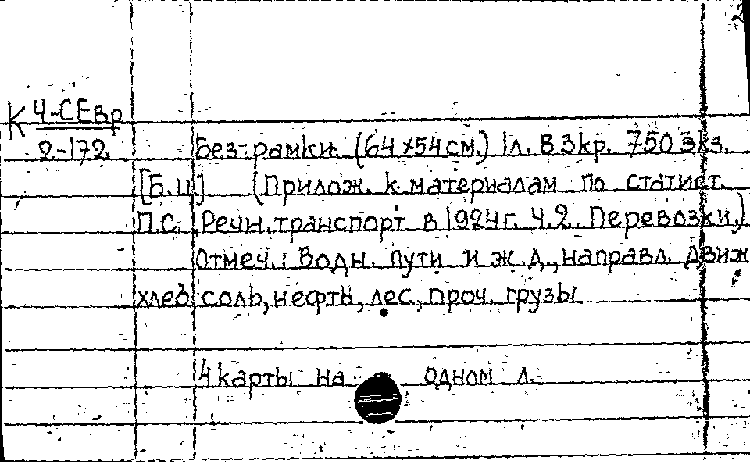 К 4-СЕвр
2-172
без рамки (64х54см.) 1л. в 3кр. 750 экз.
[Б.ц] (Прилож. к материалам по статист.
П.С. Речн. транспорт в 1924г. Ч.2. Перевозки.)
Отмеч.: водн. пути и ж.д., направл. движ
хлеб, соль, нефть, лес, проч. грузы
4 карты на одном л.